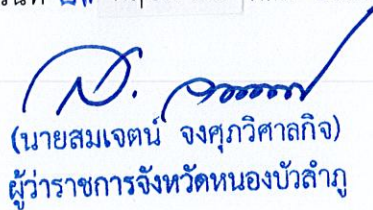 (นายสมเจตน์ จงศุภวิศาลกิจ)
ผู้ว่าราชการจังหวัดหนองบัวลำภู